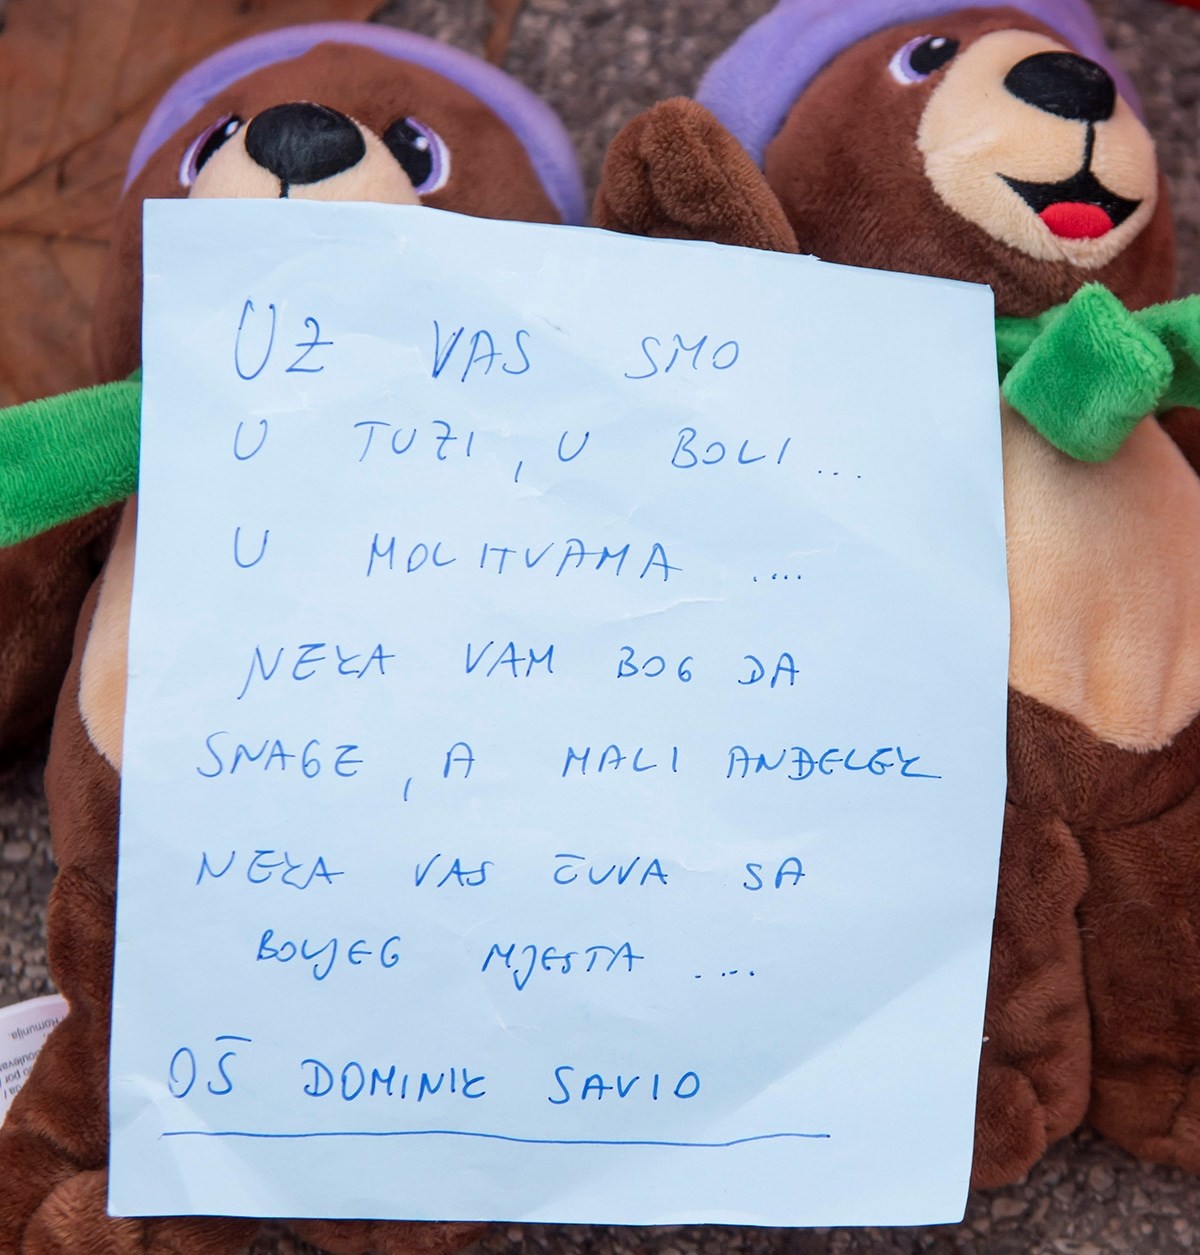 UZ VAS SMO
U TUZI, U BOLI...
U MOLITVAMA ....
NEKA VAM BOG DA
SNAGE, A MALI ANĐELEK
NEKA VAS ČUVA SA
BOLJEG MJESTA ....
OŠ DOMINIK SAVIO
Romunija.